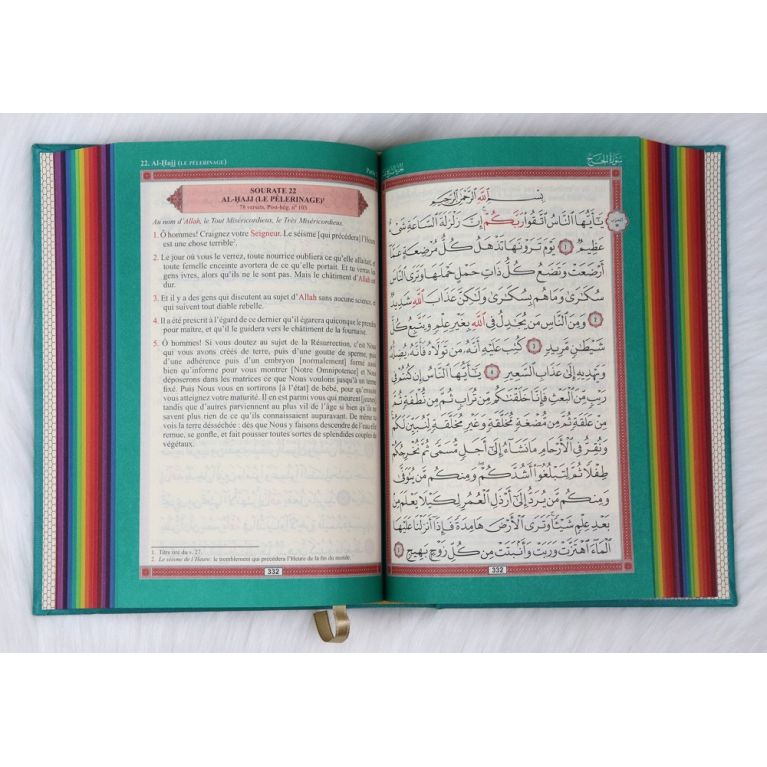 22. Al-Ḥajj (LE PÈLERINAGE)
SOURATE 22
AL-ḤAJJ (LE PÈLERINAGE)¹
78 versets, Post-hég. n° 103
Au nom d'Allah, le Tout Miséricordieux, le Très Miséricordieux.
1. Ô hommes! Craignez votre Seigneur. Le séisme [qui précédera] l'Heure
est une chose terrible².
2. Le jour où vous le verrez, toute nourrice oubliera ce qu'elle allaitait, et
toute femelle enceinte avortera de ce qu'elle portait. Et tu verras les
gens ivres, alors qu'ils ne le sont pas. Mais le châtiment d'Allah est
dur.
3. Et il y a des gens qui discutent au sujet d'Allah sans aucune science, et
qui suivent tout diable rebelle.
4. Il a été prescrit à l'égard de ce dernier qu'il égarera quiconque le prendra
pour maître, et qu'il le guidera vers le châtiment de la fournaise.
5. Ô hommes! Si vous doutez au sujet de la Résurrection, c'est Nous
qui vous avons créés de terre, puis d'une goutte de sperme, puis
d'une adhérence puis d'un embryon [normalement] formé aussi
bien qu'informe pour vous montrer [Notre Omnipotence] et Nous
déposerons dans les matrices ce que Nous voulons jusqu'à un terme
fixé. Puis Nous vous en sortirons [à l'état] de bébé, pour qu'ensuite
vous atteigniez votre maturité. Il en est parmi vous qui meurent [jeunes]
tandis que d'autres parviennent au plus vil de l'âge si bien qu'ils ne
savent plus rien de ce qu'ils connaissaient auparavant. De même tu
vois la terre désséchée : dès que Nous y faisons descendre de l'eau elle
remue, se gonfle, et fait pousser toutes sortes de splendides couples de
végétaux.
1. Titre tiré du v. 27.
2. Le séisme de l'Heure: le tremblement qui précédera l'Heure de la fin du monde.
332
سورة الحج
بِسْمِ ٱللَّهِ ٱلرَّحْمَٰنِ ٱلرَّحِيمِ
يَٰٓأَيُّهَا ٱلنَّاسُ ٱتَّقُوا۟ رَبَّكُمْ ۚ إِنَّ زَلْزَلَةَ ٱلسَّاعَةِ شَىْءٌ
عَظِيمٌ ١ يَوْمَ تَرَوْنَهَا تَذْهَلُ كُلُّ مُرْضِعَةٍ عَمَّآ
أَرْضَعَتْ وَتَضَعُ كُلُّ ذَاتِ حَمْلٍ حَمْلَهَا وَتَرَى ٱلنَّاسَ
سُكَٰرَىٰ وَمَا هُم بِسُكَٰرَىٰ وَلَٰكِنَّ عَذَابَ ٱللَّهِ شَدِيدٌ
٢ وَمِنَ ٱلنَّاسِ مَن يُجَٰدِلُ فِى ٱللَّهِ بِغَيْرِ عِلْمٍ وَيَتَّبِعُ كُلَّ
شَيْطَٰنٍ مَّرِيدٍ ٣ كُتِبَ عَلَيْهِ أَنَّهُۥ مَن تَوَلَّاهُ فَأَنَّهُۥ يُضِلُّهُۥ
وَيَهْدِيهِ إِلَىٰ عَذَابِ ٱلسَّعِيرِ ٤ يَٰٓأَيُّهَا ٱلنَّاسُ إِن كُنتُمْ فِى
رَيْبٍ مِّنَ ٱلْبَعْثِ فَإِنَّا خَلَقْنَٰكُم مِّن تُرَابٍ ثُمَّ مِن نُّطْفَةٍ ثُمَّ
مِنْ عَلَقَةٍ ثُمَّ مِن مُّضْغَةٍ مُّخَلَّقَةٍ وَغَيْرِ مُخَلَّقَةٍ لِّنُبَيِّنَ لَكُمْ
وَنُقِرُّ فِى ٱلْأَرْحَامِ مَا نَشَآءُ إِلَىٰٓ أَجَلٍ مُّسَمًّى ثُمَّ نُخْرِجُكُمْ
طِفْلًا ثُمَّ لِتَبْلُغُوٓا۟ أَشُدَّكُمْ ۖ وَمِنكُم مَّن يُتَوَفَّىٰ
وَمِنكُم مَّن يُرَدُّ إِلَىٰٓ أَرْذَلِ ٱلْعُمُرِ لِكَيْلَا يَعْلَمَ مِنۢ
بَعْدِ عِلْمٍ شَيْـًٔا ۚ وَتَرَى ٱلْأَرْضَ هَامِدَةً فَإِذَآ أَنزَلْنَا عَلَيْهَا
ٱلْمَآءَ ٱهْتَزَّتْ وَرَبَتْ وَأَنۢبَتَتْ مِن كُلِّ زَوْجٍۭ بَهِيجٍ ٥
332